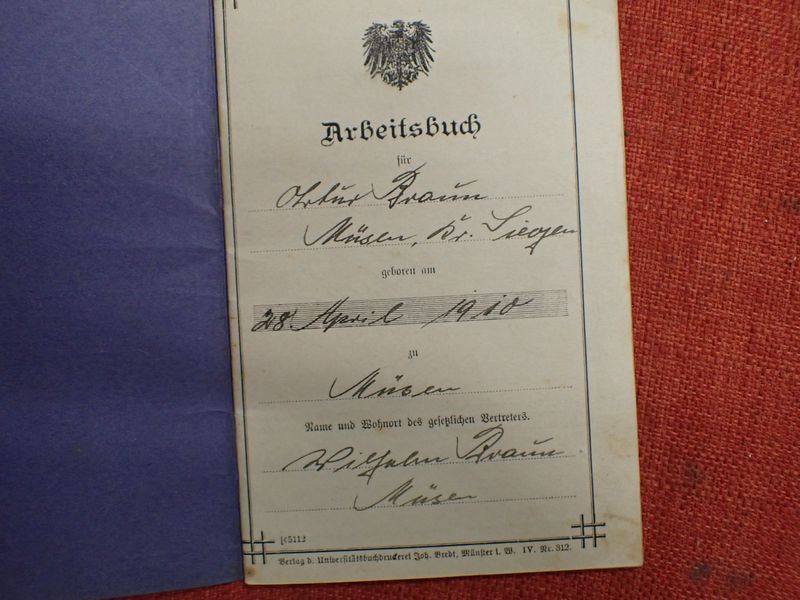 Arbeitsbuch
für
Artur Braun
Müsen, Kr. Siegen
geboren am
28. April 1910
zu
Müsen
Name und Wohnort des gesetzlichen Vertreters.
Wilhelm Braun
Müsen
Verlag d. Universitätsbuchdruckerei Joh. Bredt, Münster i. W. IV. Nr. 312.